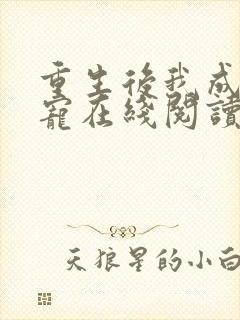 重生後我成
寵在綫閱讀
天狼星的小白